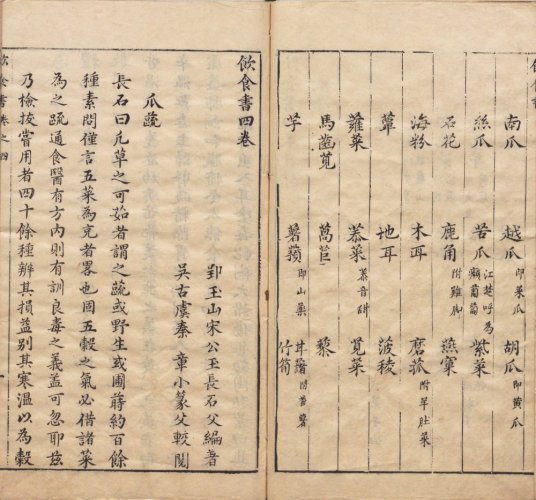 南瓜 越瓜 即菜瓜 胡瓜 即黃瓜
絲瓜 苦瓜 江楚呼為癩葡萄 紫菜
石花 鹿角 附雞脚 燕窠
海粉 木耳 蘑菰 附羊肚菜
蕈 地耳 菠稜
蕹菜 菾菜 菾音甜 莧菜
馬齒莧 萵苣 藜
芋 薯蕷 即山藥 甘藷 竹筍
飲食書四卷
郢玉山宋公玉長石父編著
吳古虞秦 章小篆父較閱
瓜蔬
長石曰凡草之可茹者謂之蔬或野生或圃蒔約百餘
種素問僅言五菜為充者畧也固五穀之氣必借諸菜
為之疏通食醫有方內則有訓良毒之義葢可忽耶茲
乃檢拔嘗用者四十餘種辨其損益別其寒溫以為穀
飲食書卷之四